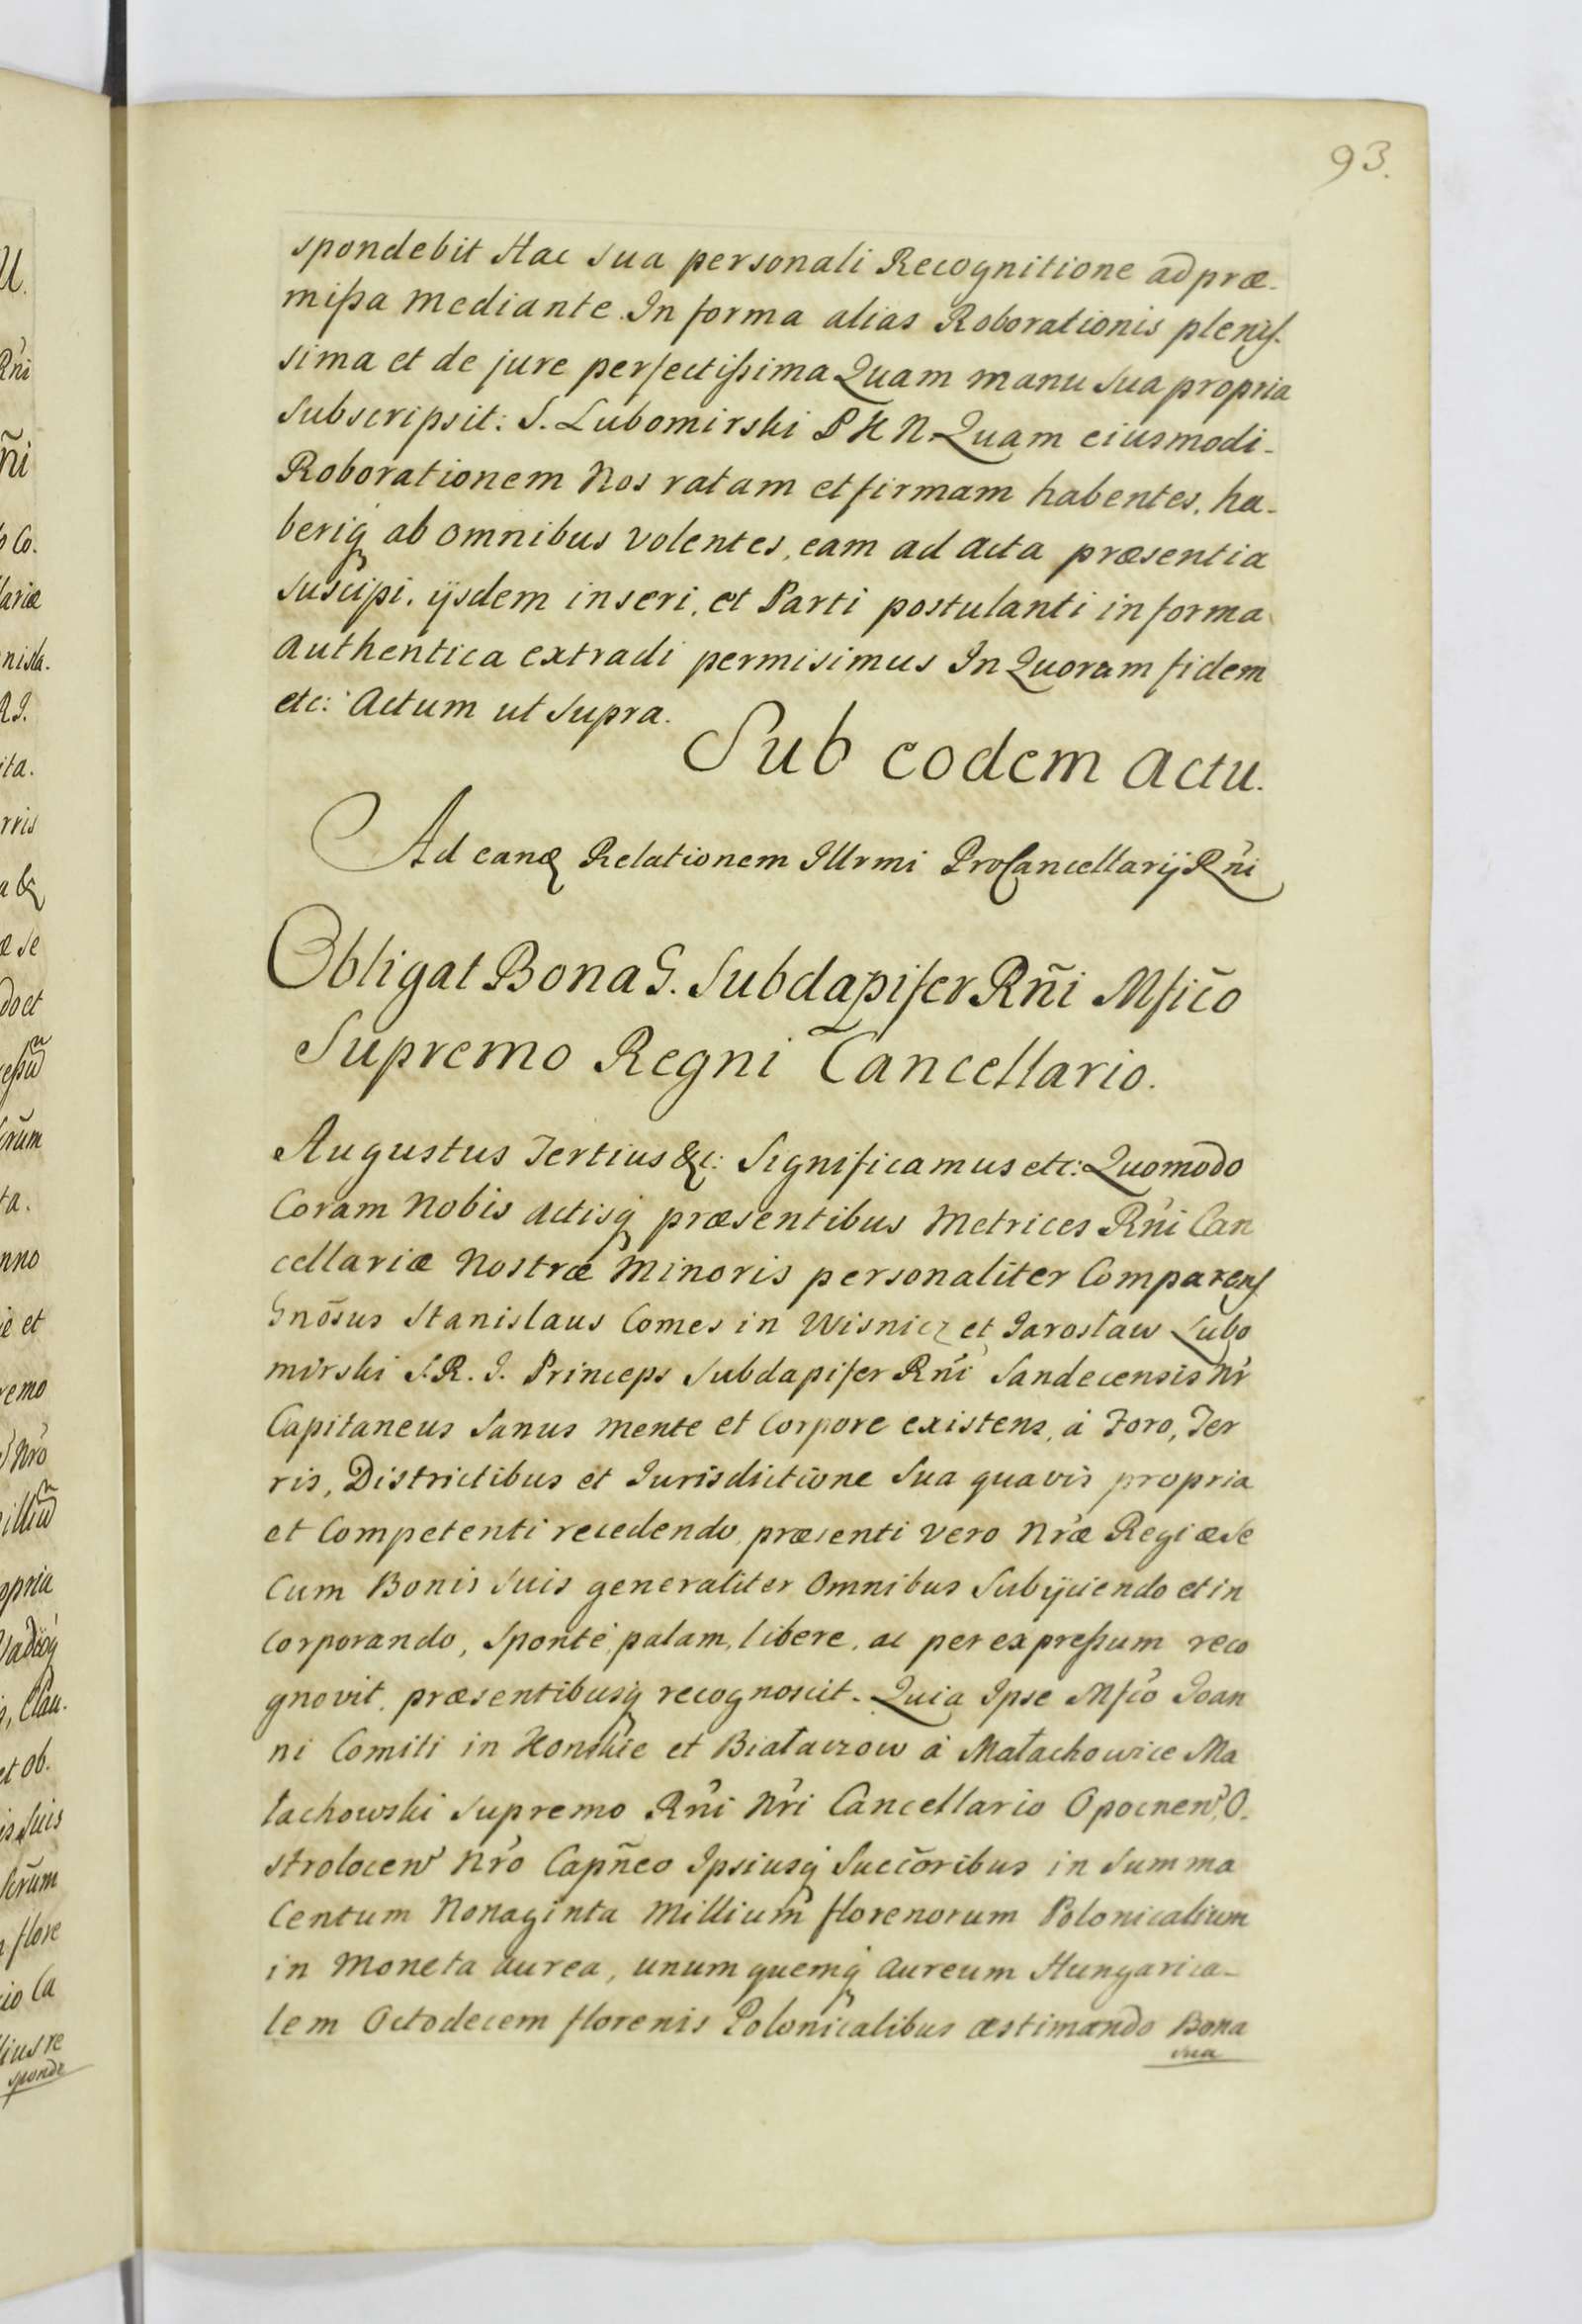 93.
spondebit Hac sua personali Recognitione ad præ-
mißa mediante. In forma alias Roborationis plenis-
sima et de jure perfectißima Quam manu sua propria
subscripsit: S. Lubomirski P K N. Quam eiusmodi-
Roborationem Nos ratam et firmam habentes, ha-
beriq ab omnibus volentes, eam ad acta præsentia
suscipi, ijsdem inseri, et Parti postulanti in forma
authentica extradi permisimus In Quorum fidem
etc: Actum ut supra.
Sub eodem actu.
Ad eanq Relationem Illrmi ProCancellarij Rñi
Obligat Bona G. Subdapifer Rñi Mficõ
Supremo Regni Cancellario.
Augustus Tertius &c: Significamus etc: Quomodo
Coram Nobis actisq præsentibus Metrices Rñi Can
cellariæ Nostræ Minoris personaliter Comparens
Gnõsus Stanislaus Comes in Wisnicz et Jarosław Lubo
mirski S. R. J. Princeps Subdapifer Rñi Sandecensis Nr
Capitaneus Sanus mente et Corpore existens, à Foro, Ter
ris, Districtibus et Jurisdictione sua quavis propria
et Competenti recedendo, præsenti vero Nræ Regiæ se
Cum Bonis suis generaliter Omnibus Subijciendo et in
corporando, sponte, palam, libere, ac per expreßum reco
gnovit, præsentibusq recognoscit. Quia Ipse Mfcõ Joan
ni Comiti in Konskie et Białaczow à Małachowice Ma
łachowski Supremo Rñi Nri Cancellario Opocnen, O.
strolocen Nro Capñeo Ipsiusq Succõribus in Summa
Centum Nonaginta Millium florenorum Polonicalium
in Moneta aurea, unum quemq aureum Hungarica-
lem Octodecem florenis Polonicalibus æstimando Bona
sua